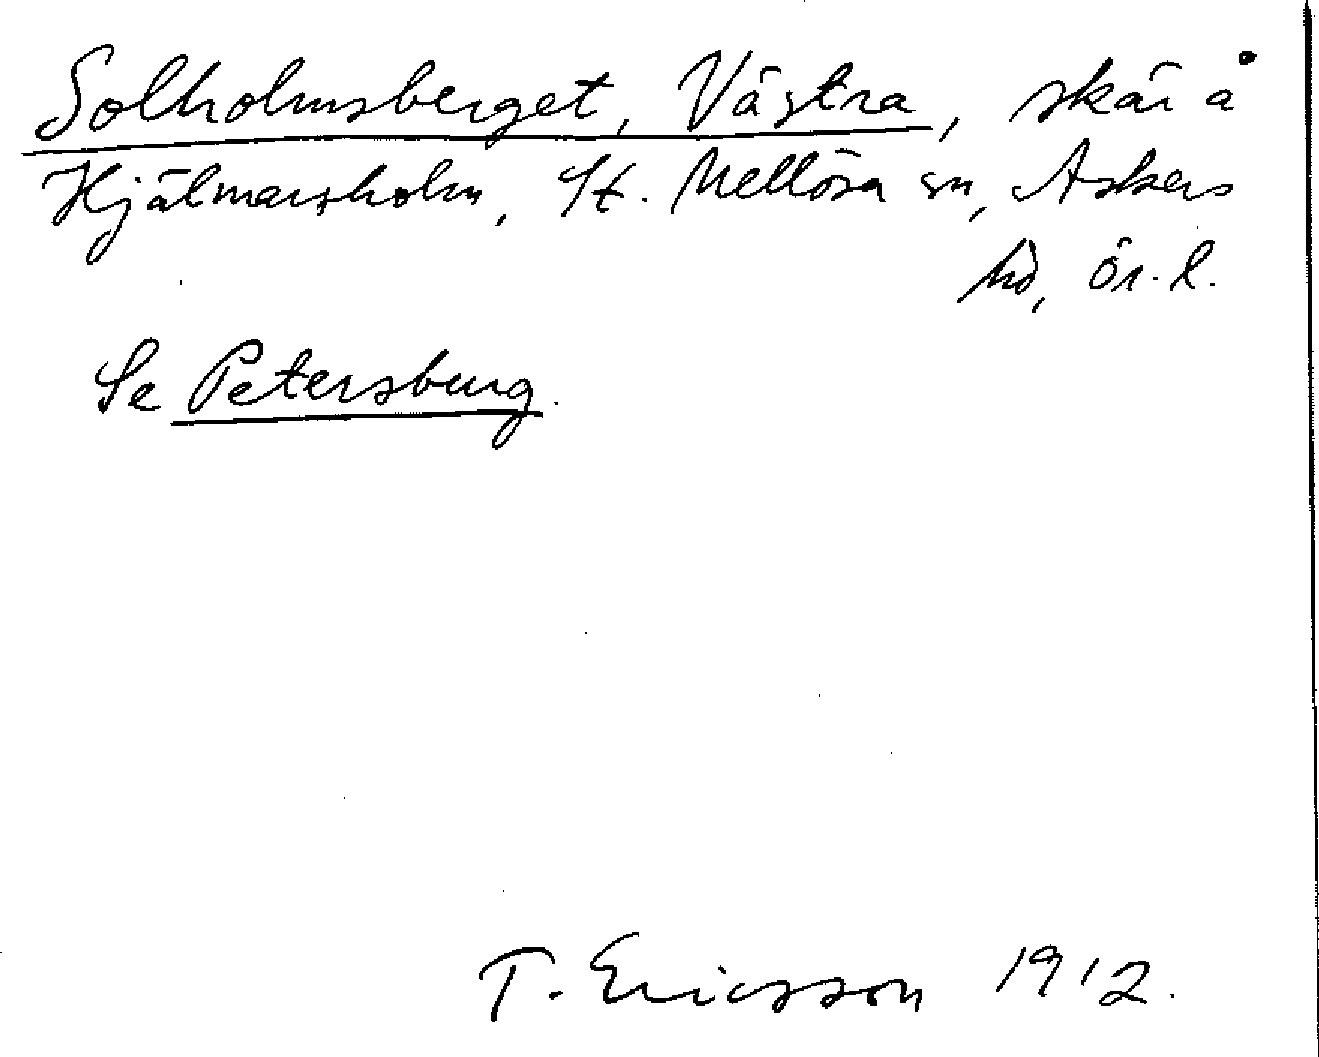 Solholmsberget, Västra, skär å
Hjälmarsholm, St. Mellösa sn, Askers
hd, Ör. l.
Se Petersburg.
T. Ericsson 1912.